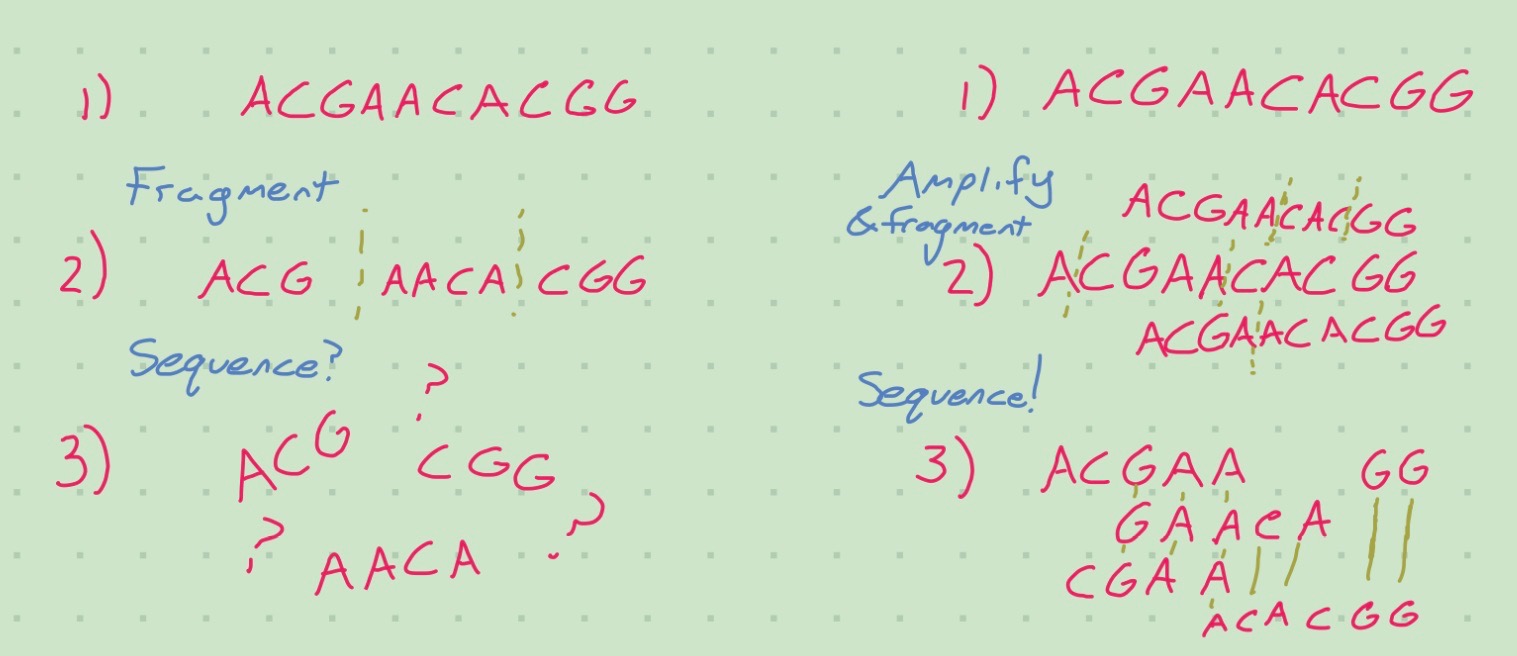 1) ACGAACACGG
Fragment
2) ACG AACA CGG
Sequence?
?
3) ACG CGG
? AACA ?
1) ACGAACACGG
Amplify
& fragment
ACGAACACGG
2) ACGAACACGG
ACGAACACGG
Sequence!
3) ACGAA GG
GAACA
CGAA
ACACGG